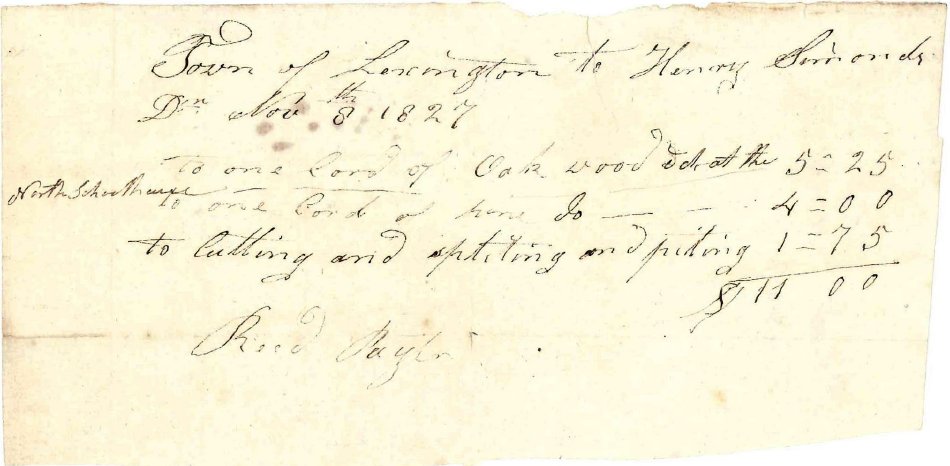 Town of Lexington to Henry Simonds
Dr Nov 8th 1827
to one Cord of Oak wood dd at the 5=25
North Schoolhouse
to one Cord of pine Do — — 4=00
to Cutting and spliting and piling 1=75
$11 00
Recd Payt